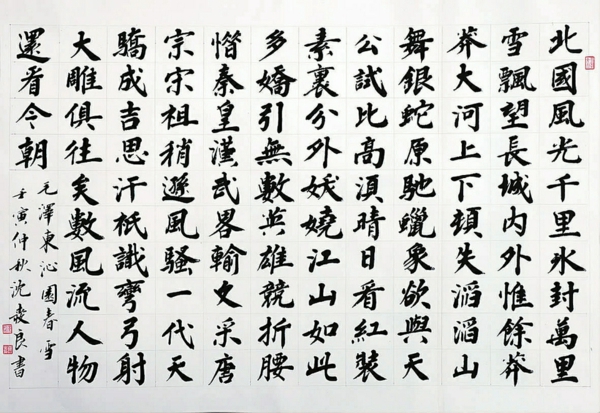 北國風光千里冰封萬里
雪飄望長城内外惟餘莽
莽大河上下頓失滔滔山
舞銀蛇原馳蠟象欲與天
公試比高須晴日看紅裝
素裹分外妖嬈江山如此
多嬌引無數英雄競折腰
惜秦皇漢武畧輸文采唐
宗宋祖稍遜風騷一代天
驕成吉思汗祇識彎弓射
大雕俱往矣數風流人物
還看今朝
毛澤東沁園春雪
壬寅仲秋沈良書